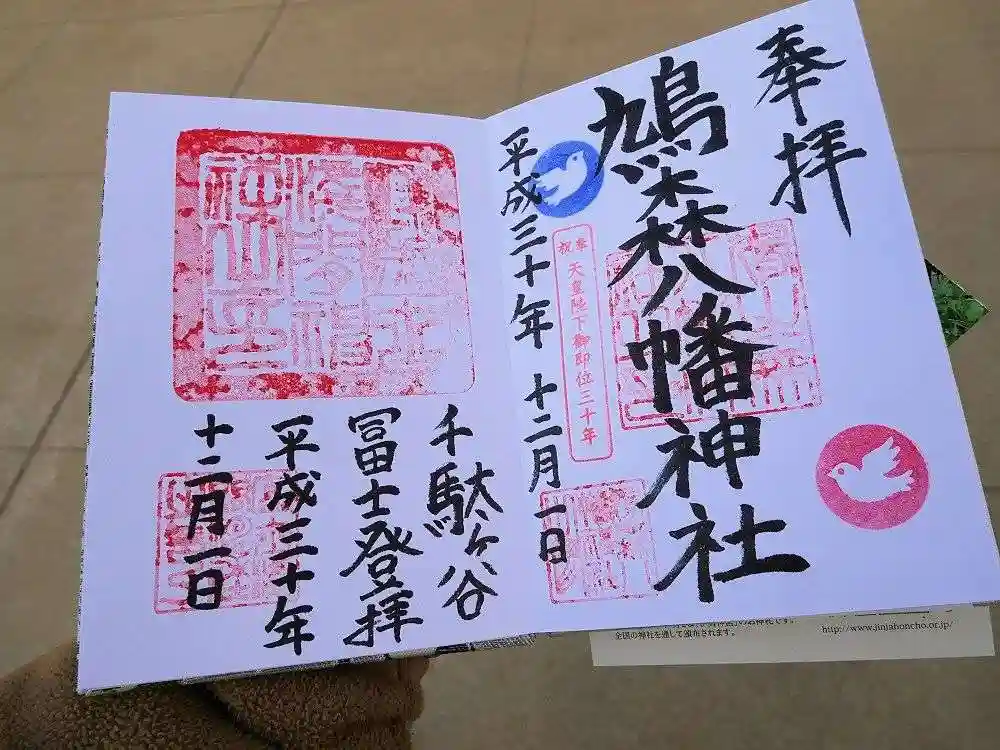 奉拝
鳩森八幡神社
奉祝
天皇陛下御即位三十年
平成三十年 十二月一日
千駄ヶ谷
冨士登拝
平成三十年
十二月一日
全国の神社を通して頒布されます。
http://www.jinjahoncho.or.jp/